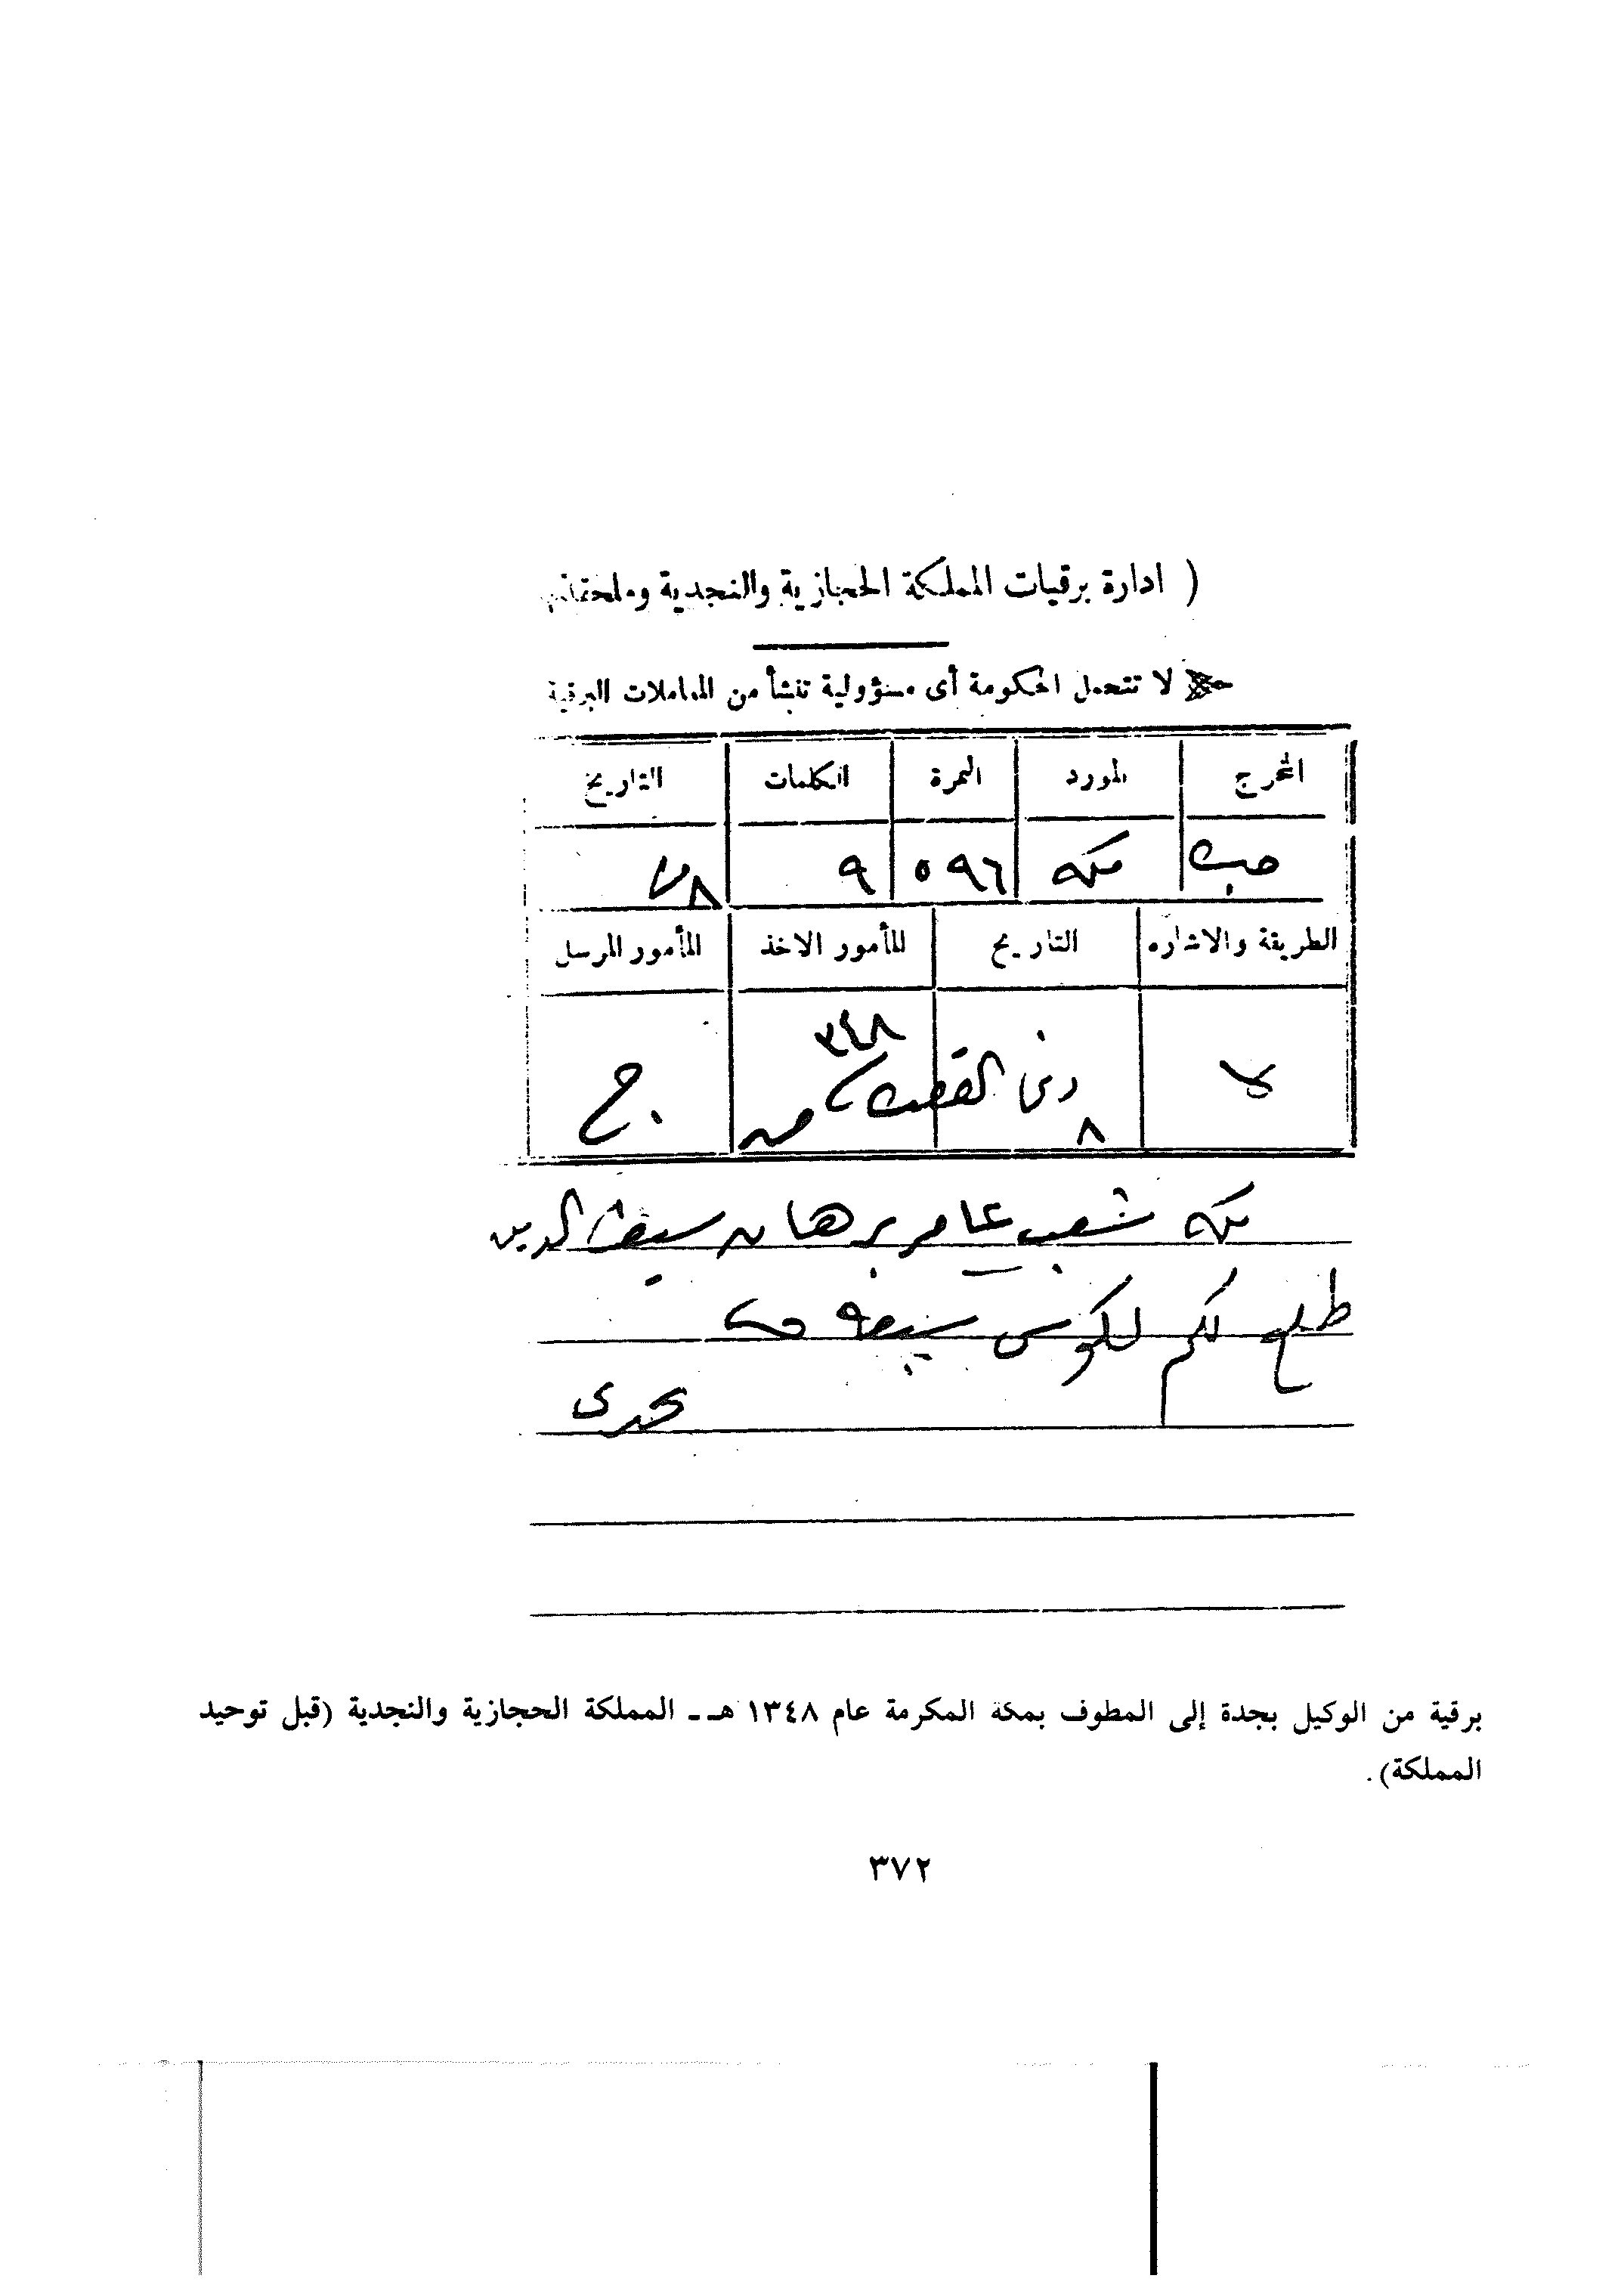 ( ادارة برقيات المملكة الحجازية والنجدية وملحقاتها
لا تتحمل الحكومة أى مسؤولية تنشأ من المعاملات البرقية
المخرج المورد النمرة الكلمات التاريخ
مكه ٥٩٦ ٩ ٨
الطريقة والاشاره التاريخ المأمور الاخذ المأمور المرسل
٣٤٨
ذى القعدة
٨
مكه شعب عامر برهان سيف الدين
طلع لكم
برقية من الوكيل بجدة إلى المطوف بمكة المكرمة عام ١٣٤٨ هـ ـ المملكة الحجازية والنجدية (قبل توحيد
المملكة).
٣٧٢